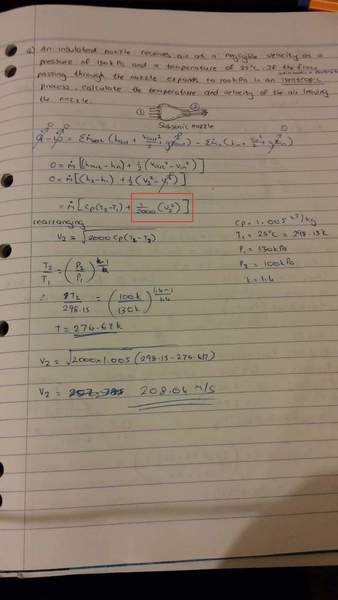 a) An insulated nozzle receives air at a negligible velocity at a
pressure of 130kPa and a temperature of 25°C. If the
passing through the nozzle expands to 100kPa in an isentropic
process, calculate the temperature and velocity of the air leaving
the nozzle.
① ②
Subsonic nozzle
0 0 0 0 0
Q̇ - Ẇ = Σṁout (hout + Vout²/2 + gzout) - Σṁin (hin + Vin²/2 + gzin)
0 = ṁ [(hout-hin) + ½ (Vout² - Vin²)]
0 = ṁ [(h2-h1) + ½ (V2² - V1²)]
= ṁ [Cp(T2-T1) + 1/2000 (V2²)]
rearranging
V2 = √2000 Cp(T1-T2)
Cp = 1.005 kJ/kg
T1 = 25°C = 298.15K
P1 = 130kPa
P2 = 100kPa
k = 1.4
T2/T1 = (P2/P1)^(k-1/k)
∴ T2/298.15 = (100k/130k)^(1.4-1/1.4)
T = 276.61K
V2 = √2000×1.005 (298.15-276.61)
V2 = 208.06 m/s